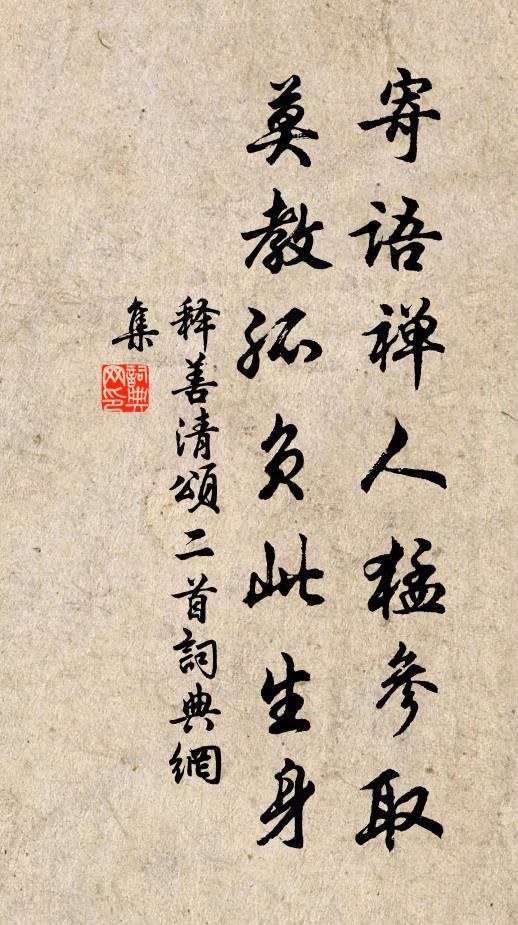 寄语禅人猛参取
莫教孤负此生身
释善清颂二首詞典網
集
詞典
网印